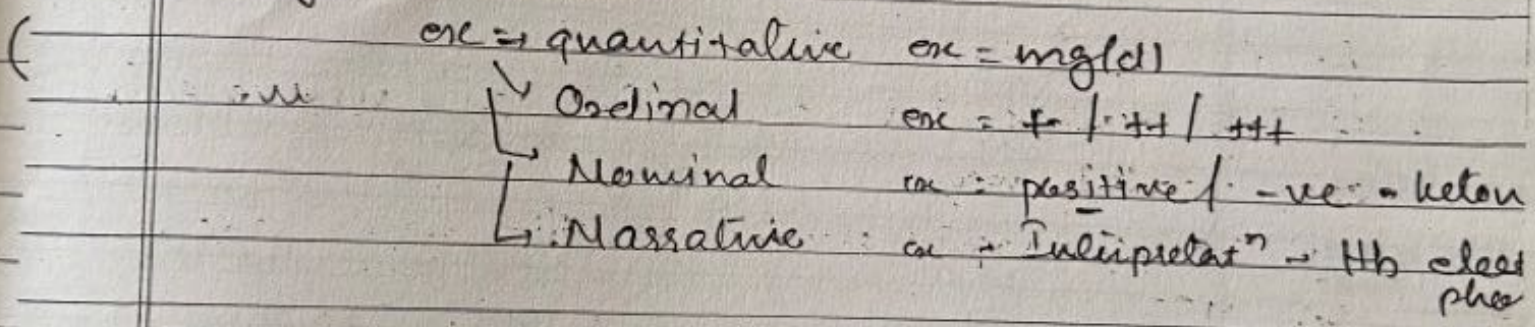 ex => quantitative ex = mg/dl
↳ Ordinal ex = + / ++ / +++
↳ Nominal ex = positive / -ve - keton
↳ Narrative ex = Interpretatⁿ - Hb elect
phoe